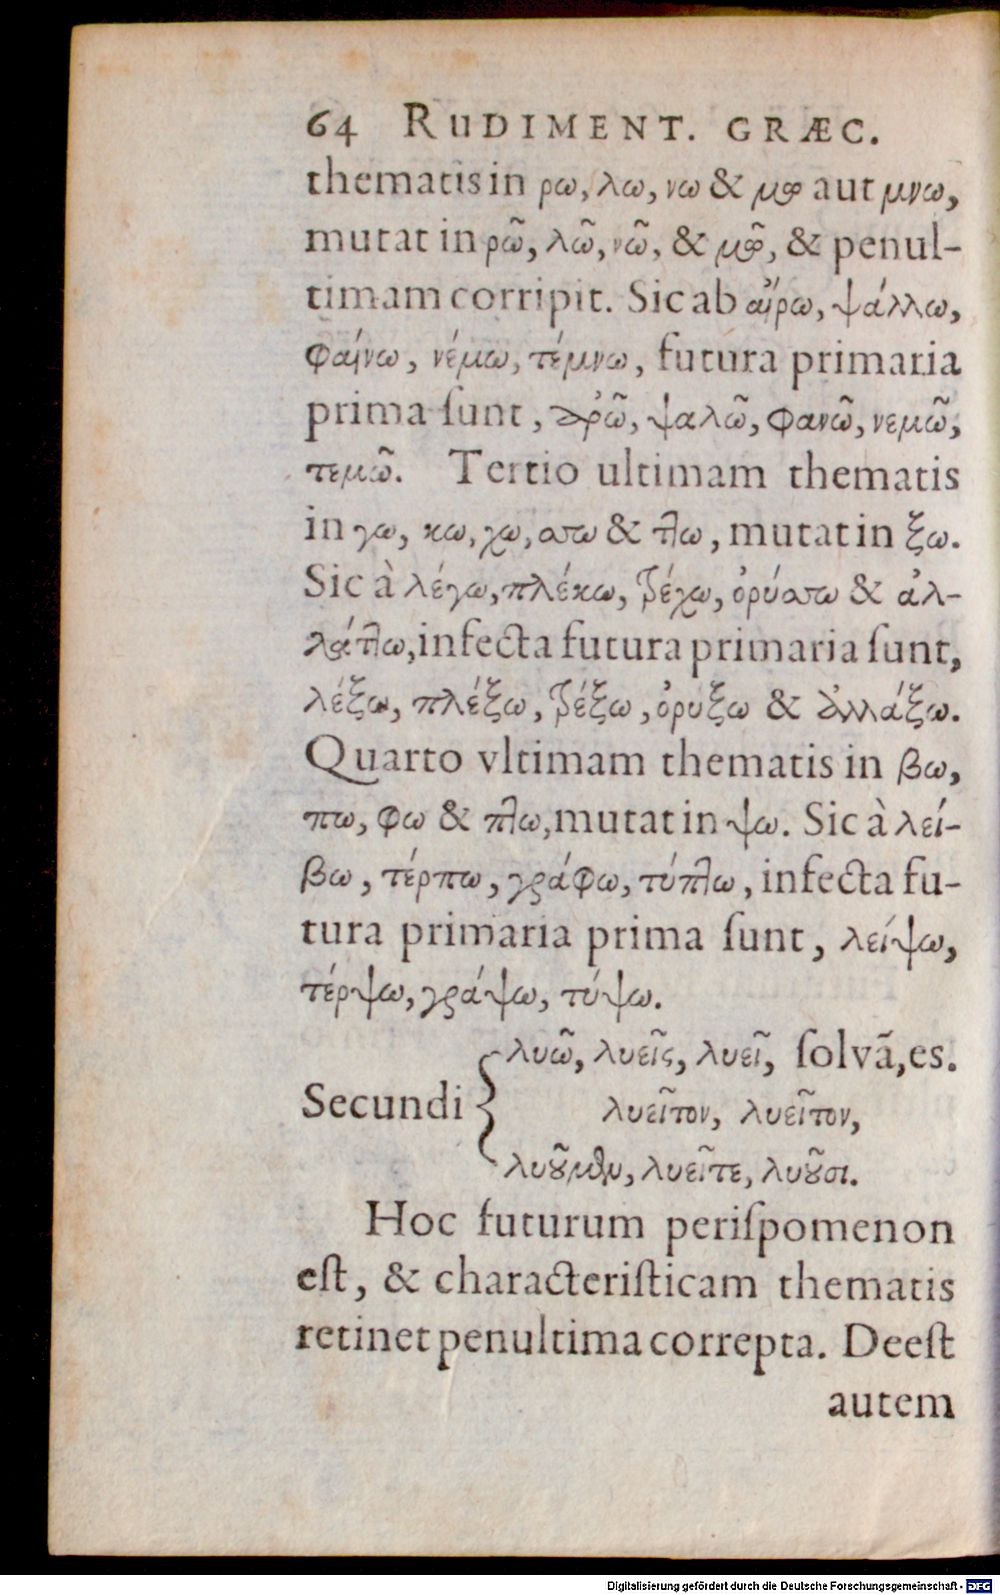 64 RUDIMENT. GRÆC.
thematis in ρω, λω, νω & μω aut μνω,
mutat in ρῶ, λῶ, νῶ, & μῶ, & penul-
timam corripit. Sic ab αἴρω, ψάλλω,
φαίνω, νέμω, τέμνω, futura primaria
prima ſunt, ἀρῶ, ψαλῶ, φανῶ, νεμῶ,
τεμῶ. Tertio ultimam thematis
in γω, κω, χω, σσω & τλω, mutat in ξω.
Sic à λέγω, πλέκω, βρέχω, ὀρύσσω & ἀλ-
λάττω, infecta futura primaria ſunt,
λέξω, πλέξω, βρέξω, ὀρύξω & ἀλλάξω.
Quarto vltimam thematis in βω,
πω, φω & πτω, mutat in ψω. Sic à λεί-
βω, τέρπω, γράφω, τύπτω, infecta fu-
tura primaria prima ſunt, λείψω,
τέρψω, γράψω, τύψω.
λυῶ, λυεῖς, λυεῖ, ſolvã, es.
Secundi { λυεῖτον, λυεῖτον,
λυοῦμεν, λυεῖτε, λυοῦσι.
Hoc futurum periſpomenon
eſt, & characteriſticam thematis
retinet penultima correpta. Deeſt
autem
Digitalisierung gefördert durch die Deutsche Forschungsgemeinschaft - DFG